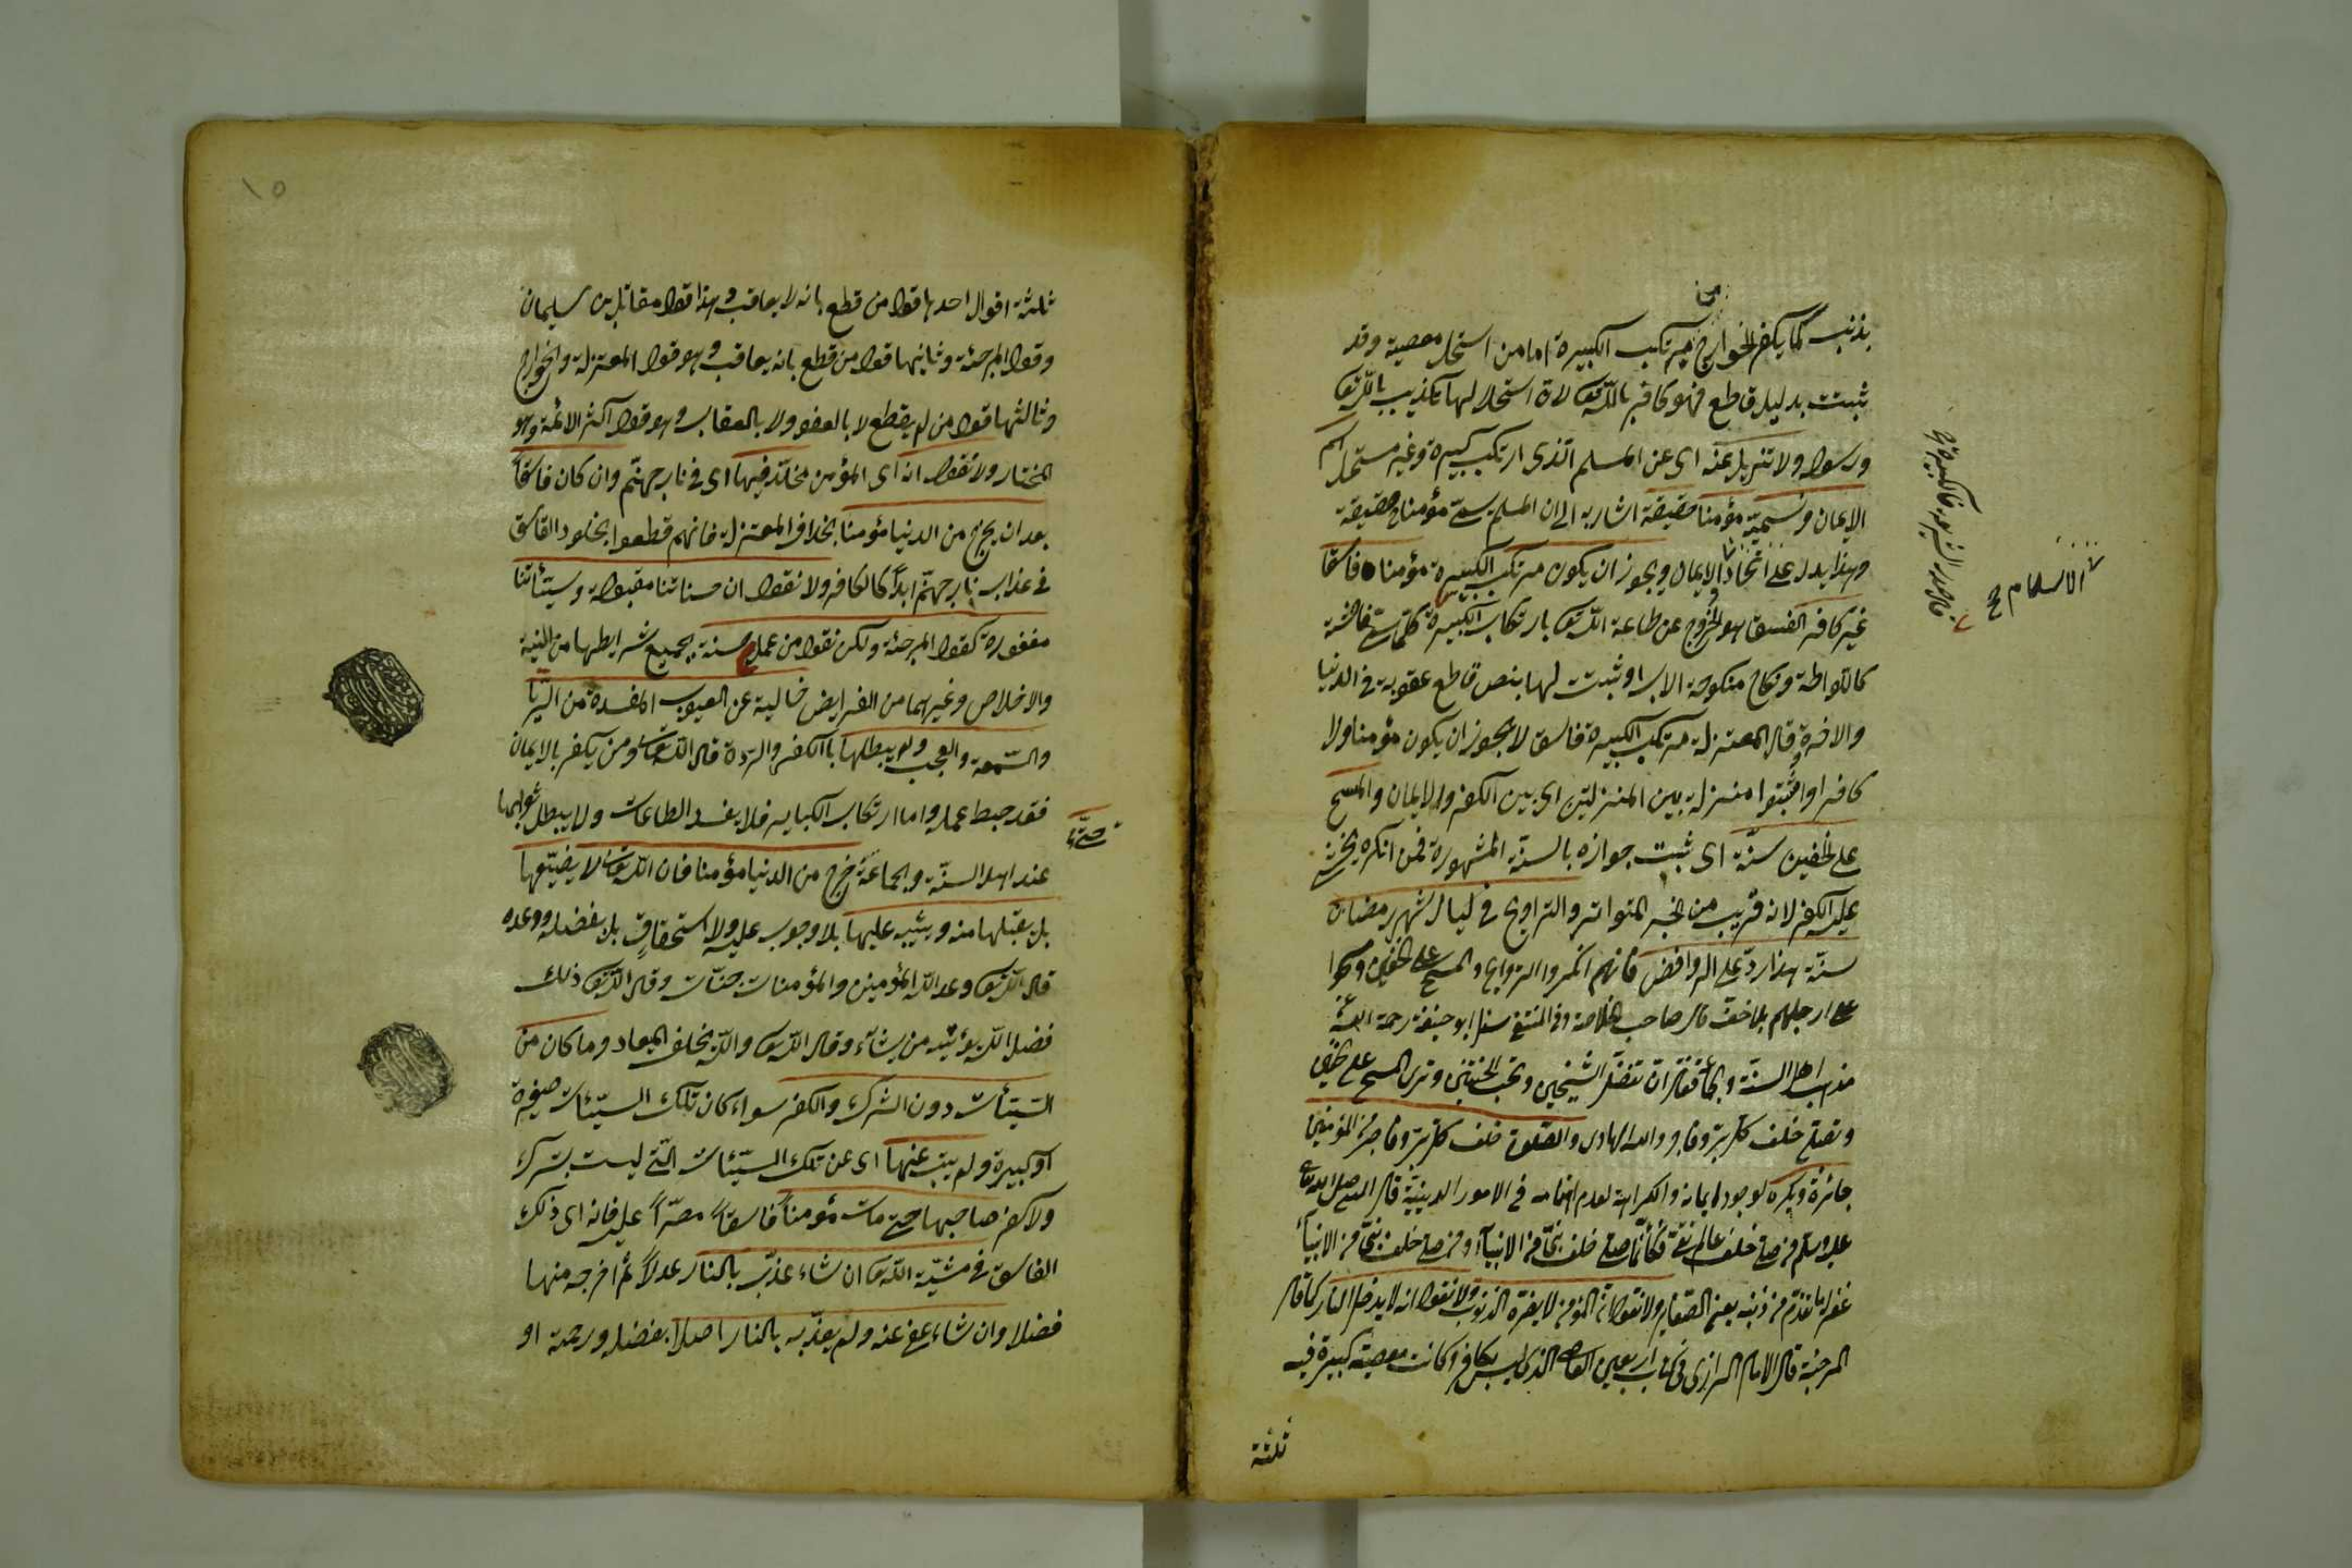 بذنب كما يكفر الخوارج مرتكب الكبيرة امامن استحل معصية وقد
ثبتت بدليل قاطع فهو كافر بالله تع لان استحلالها تكذيب بالله تع
ورسوله ولا نزيل عنه اى عن المسلم الذى ارتكب كبيرة وغير مستحل اسم
الايمان ونسميه مؤمنا حقيقة اشارة الى ان المسلم يسمى مؤمنا حقيقة
وهذا يدل على اتحاد الايمان ويجوز ان يكون مرتكب الكبيرة مؤمنا فاسقا
غير كافر الفسق هو الخروج عن طاعة الله تع بارتكاب الكبيرة كلما سمى فاحشة
كاللواطة ونكاح منكوحة الاب او ثبتت لها بنص قاطع عقوبة فى الدنيا
والاخرة قال المعتزلة مرتكب الكبيرة فاسق لا يجوز ان يكون مؤمنا ولا
كافرا واثبتوا منزلة بين المنزلتين اى بين الكفر والايمان والمسح
على الخفين سنة اى ثبت جوازه بالسنة المشهورة فمن انكره يخشى
عليه الكفر لانه قريب من الخبر المتواتر والتراويح فى ليال شهر رمضان
سنة هذا رد على الروافض فانهم انكروا التراويح والمسح على الخفين ومسحوا
على ارجلهم بلا خف قال صاحب الخلاصة وفى المنتقى سئل ابو حنيفة رحمه الله عن
مذهب اهل السنة والجماعة فقال ان تفضل الشيخين وتحب الختنين وترى المسح على الخفين
وتصلى خلف كل بر وفاجر والله الهادى والصلوة خلف كل بر وفاجر من المؤمنين
جائزة ويكره لوجود ايمانه والكراهة لعدم اهتمامه فى الامور الدينية قال النبى صلى الله تعالى
عليه وسلم من صلى خلف عالم تقى فكأنما صلى خلف نبى من الانبياء ومن صلى خلف نبى من الانبياء
غفر له ما تقدم من ذنبه يعنى الصغاير ولا نقول ان المؤمن لا يضره الذنوب ولا نقول انه لا يدخل النار كما قال
المرجئة قال الامام الرازى فى كتاب اربعين العاصى الذى ليس بكافر وكانت معصيته كبيرة فيه
ثلثة
الاسلام صح
١٥
ثلثة اقوال احدها قول من قطع بانه لا يعاقب وهذا قول مقاتل بن سليمان
وقول المرجئة وثانيها قول من قطع بانه يعاقب وهو قول المعتزلة والخوارج
وثالثها قول من لم يقطع لا بالعفو ولا بالعقاب وهو قول اكثر الائمة وهو
المختار ولا نقول انه اى المؤمن مخلد فيها اى فى نار جهنم وان كان فاسقا
بعد ان يخرج من الدنيا مؤمنا بخلاف المعتزلة فانهم قطعوا بخلود الفاسق
فى عذاب نار جهنم ابدا كالكافر ولا نقول ان حسناتنا مقبولة وسيئاتنا
مغفورة كقول المرجئة ولكن نقول من عمل حسنة بجميع شرايطها من النية
والاخلاص وغيرهما من الفرايض خالية عن العيوب المفسدة من الريا
والسمعة والعجب ولم يبطلها بالكفر والردة قال الله تعالى ومن يكفر بالايمان
فقد حبط عمله واما ارتكاب الكباير فلا يفسد الطاعات ولا يبطل ثوابها
عند اهل السنة والجماعة خرج من الدنيا مؤمنا فان الله تعالى لا يضيعها
حتى
بل يقبلها منه ويثيبه عليها بلا وجوب عليه ولا استحقاق بل بفضله ووعده
قال الله تع وعد الله المؤمنين والمؤمنات جنات وقال الله تع ذلك
فضل الله يؤتيه من يشاء وقال الله تع والله يخلف الميعاد وما كان من
السيئات دون الشرك والكفر سواء كان تلك السيئات صغيرة
او كبيرة ولم يتب عنها اى عن تلك السيئات التى ليست بشرك
ولا كفر صاحبها حتى مات مؤمنا فاسقا مصرا عليه فانه اى ذلك
الفاسق فى مشية الله تع ان شاء عذبه بالنار عدلا ثم اخرجه منها
فضلا وان شاء عفى عنه ولم يعذبه بالنار اصلا بفضله ورحمته او